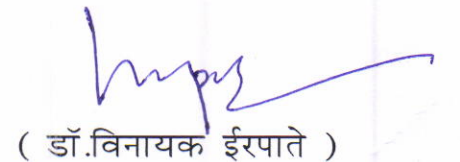 ( डॉ.विनायक ईरपाते )